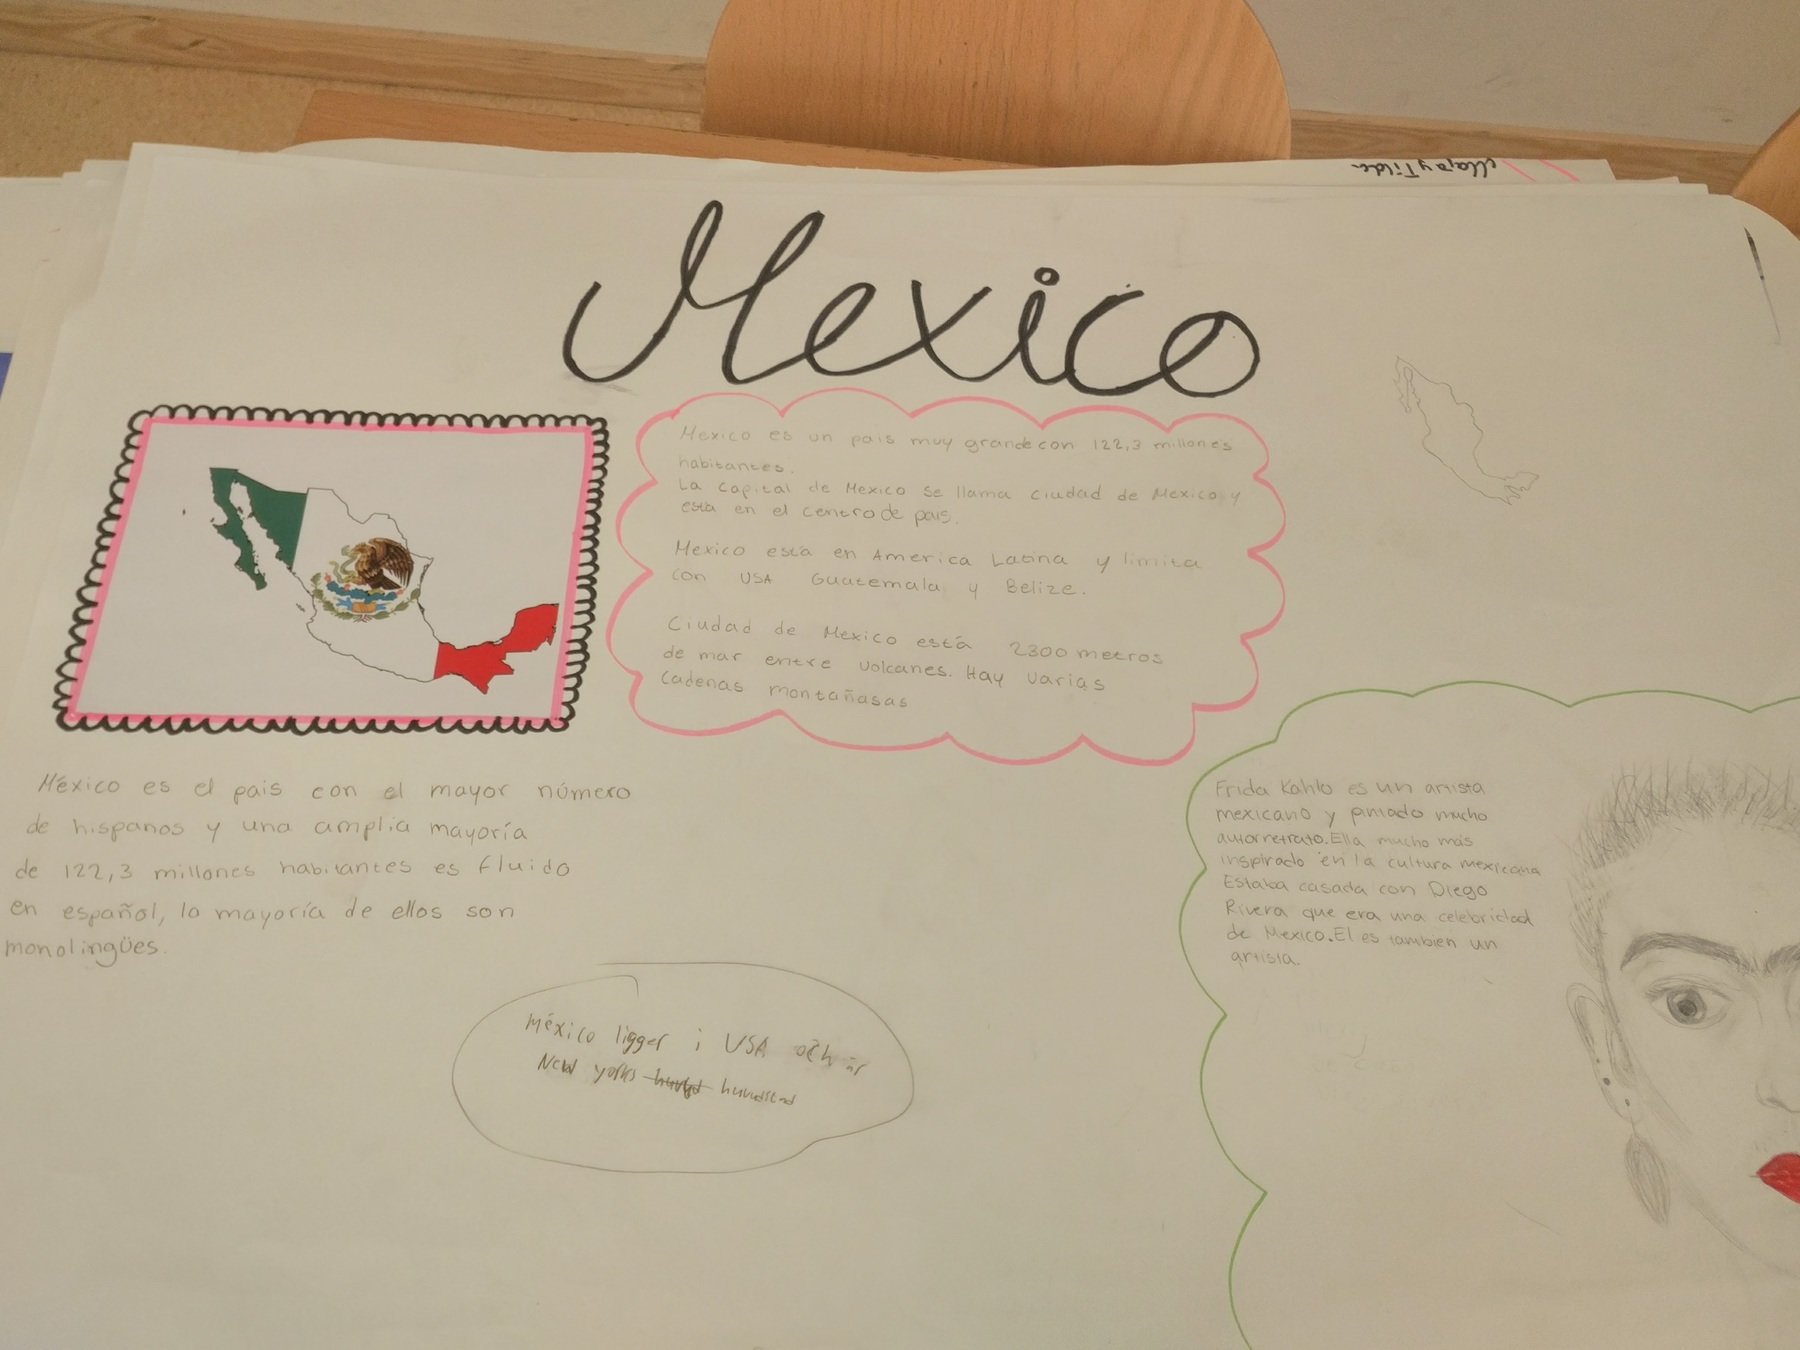 Maja y Tilda
Mexico
Mexico es un pais muy grande con 122,3 millones
habitantes.
La capital de Mexico se llama ciudad de Mexico y
esta en el centro de pais.
Mexico está en America Latina y limita
con USA Guatemala y Belize.
Ciudad de Mexico está 2300 metros
de mar entre volcanes. Hay varias
cadenas montañasas
México es el pais con el mayor número
de hispanos y una amplia mayoría
de 122,3 millones habitantes es fluido
en español, la mayoría de ellos son
monolingües.
México ligger i USA och är
New yorks huvudstad
Frida Kahlo es un artista
mexicano y pintado mucho
autorretrato. Ella mucho más
inspirado en la cultura mexicana
Estaba casada con Diego
Rivera que era una celebridad
de Mexico. El es tambien un
artista.